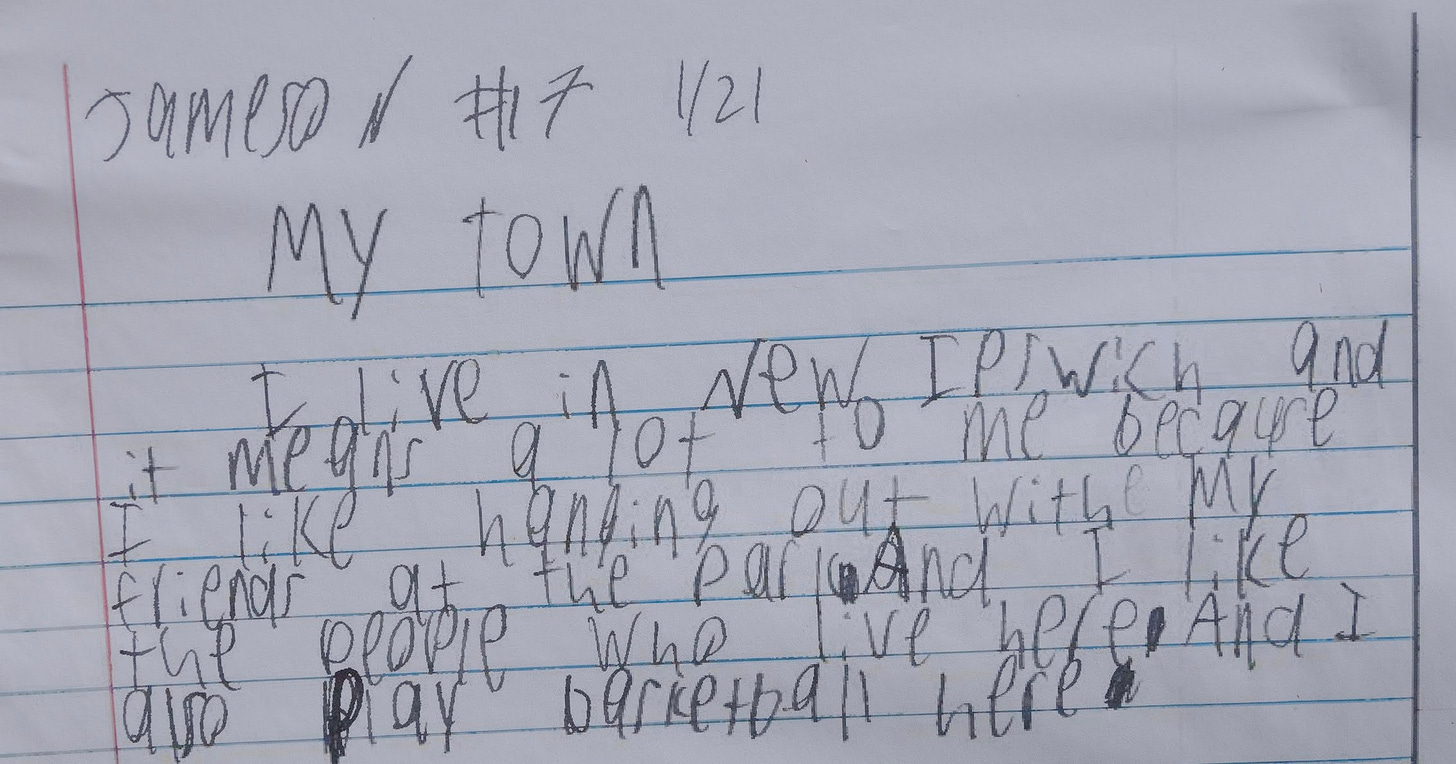 Jameson #17 1/21
My town
I live in New Ipswich and
it means a lot to me because
I like hanging out withe my
friends at the park. And I like
the people who live here. And I
also play basketball here.